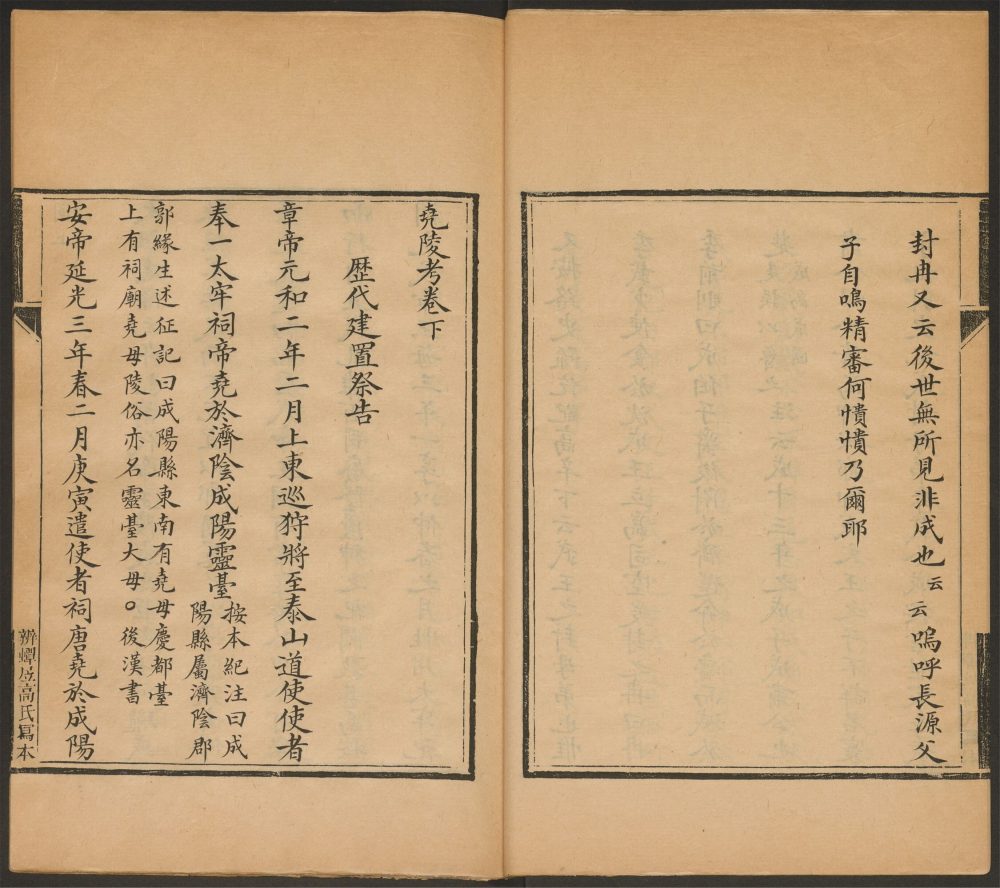 封冉又云後世無所見非成也云云嗚呼長源父
子自鳴精審何憒憒乃爾耶
堯陵考卷下
歷代建置祭告
章帝元和二年二月上東巡狩將至泰山道使使者
奉一太牢祠帝堯於濟陰成陽靈臺按本紀注曰成
陽縣屬濟陰郡
郭緣生述征記曰成陽縣東南有堯母慶都臺
上有祠廟堯母陵俗亦名靈臺大母○後漢書
安帝延光三年春二月庚寅遣使者祠唐堯於成陽
辨蟫居高氏寫本